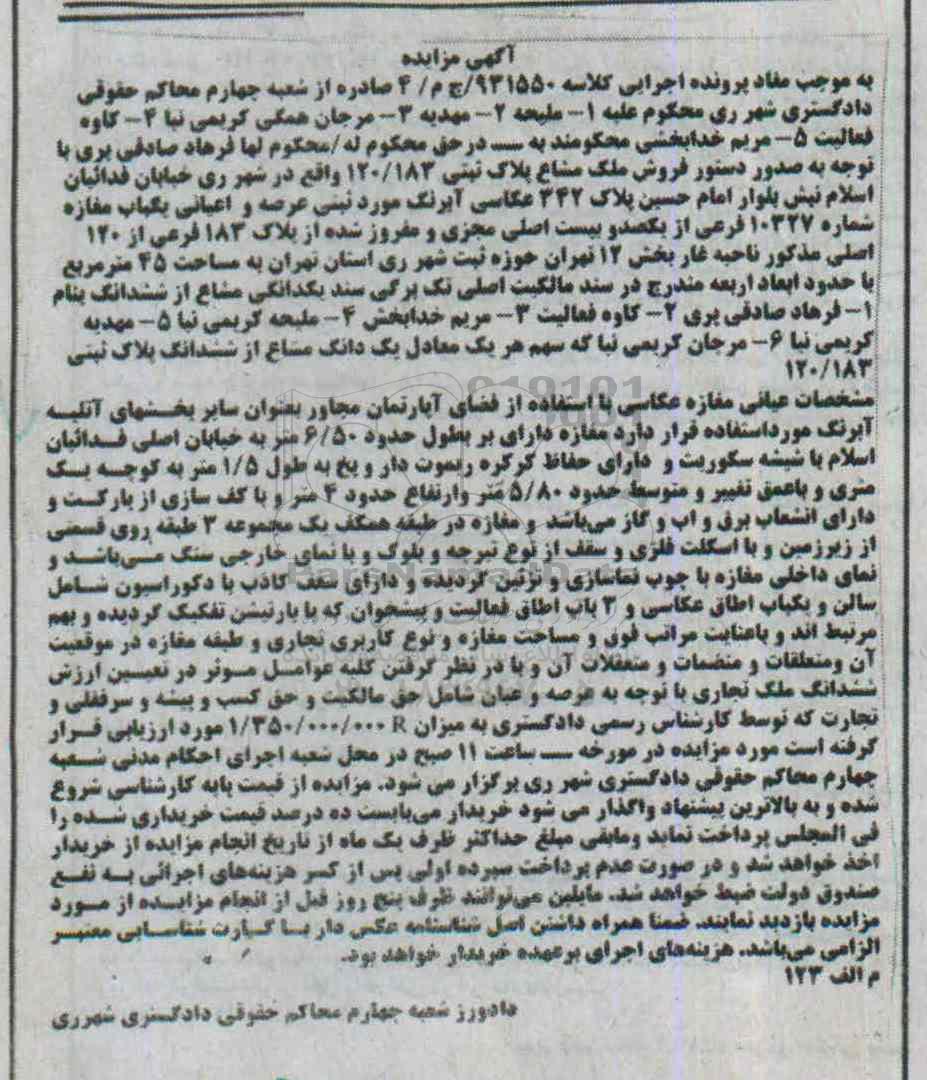 آگهی مزایده
به موجب مفاد پرونده اجرایی کلاسه ۹۳۱۵۵۰/ج م/ ۴ صادره از شعبه چهارم محاکم حقوقی
دادگستری شهر ری محکوم علیه ۱- ملیحه ۲- مهدیه ۳- مرجان همگی کریمی نیا ۴- کاوه
فعالیت ۵- مریم خدابخشی محکومند به ـــــ در حق محکوم له /محکوم لها فرهاد صادقی پری با
توجه به صدور دستور فروش ملک مشاع پلاک ثبتی ۱۲۰/۱۸۳ واقع در شهر ری خیابان فدائیان
اسلام نبش بلوار امام حسین پلاک ۳۴۲ عکاسی آبرنگ مورد ثبتی عرصه و اعیانی یکباب مغازه
شماره ۱۰۳۲۷ فرعی از یکصدو بیست اصلی مجزی و مفروز شده از پلاک ۱۸۳ فرعی از ۱۲۰
اصلی مذکور ناحیه غار بخش ۱۲ تهران حوزه ثبت شهر ری استان تهران به مساحت ۴۵ مترمربع
با حدود ابعاد اربعه مندرج در سند مالکیت اصلی تک برگی سند یکدانگی مشاع از ششدانگ بنام
۱- فرهاد صادقی پری ۲- کاوه فعالیت ۳- مریم خدابخش ۴- ملیحه کریمی نیا ۵- مهدیه
کریمی نیا ۶- مرجان کریمی نیا که سهم هر یک معادل یک دانگ مشاع از ششدانگ پلاک ثبتی
۱۲۰/۱۸۳
مشخصات عیانی مغازه عکاسی با استفاده از فضای آپارتمان مجاور بعنوان سایر بخشهای آتلیه
آبرنگ مورداستفاده قرار دارد مغازه دارای بر بطول حدود ۶/۵۰ متر به خیابان اصلی فدائیان
اسلام با شیشه سکوریت و دارای حفاظ کرکره ریموت دار و پخ به طول ۱/۵ متر به کوچه یک
متری و باعمق تغییر و متوسط حدود ۵/۸۰ متر وارتفاع حدود ۴ متر و با کف سازی از پارکت و
دارای انشعاب برق و اب و گاز می‌باشد و مغازه در طبقه همکف یک مجموعه ۳ طبقه روی قسمتی
از زیرزمین و با اسکلت فلزی و سقف از نوع تیرچه و بلوک و با نمای خارجی سنگ می‌باشد و
نمای داخلی مغازه با چوب نماسازی و تزئین گردیده و دارای سقف کاذب با دکوراسیون شامل
سالن و یکباب اطاق عکاسی و ۳ باب اطاق فعالیت و پیشخوان که با پارتیشن تفکیک گردیده و بهم
مرتبط اند و باعنایت مراتب فوق و مساحت مغازه و نوع کاربری تجاری و طبقه مغازه در موقعیت
آن ومتعلقات و منضمات و متعقلات آن و با در نظر گرفتن کلیه عوامل موثر در تعیین ارزش
ششدانگ ملک تجاری با توجه به عرصه و عیان شامل حق مالکیت و حق کسب و پیشه و سرقفلی و
تجارت که توسط کارشناس رسمی دادگستری به میزان R ۱/۳۵۰/۰۰۰/۰۰۰ مورد ارزیابی قرار
گرفته است مورد مزایده در مورخه ـــــ ساعت ۱۱ صبح در محل شعبه اجرای احکام مدنی شعبه
چهارم محاکم حقوقی دادگستری شهر ری برگزار می شود. مزایده از قیمت پایه کارشناسی شروع
شده و به بالاترین پیشنهاد واگذار می شود خریدار می‌بایست ده درصد قیمت خریداری شده را
فی المجلس پرداخت نماید ومابقی مبلغ حداکثر ظرف یک ماه از تاریخ انجام مزایده از خریدار
اخذ خواهد شد و در صورت عدم پرداخت سپرده اولی پس از کسر هزینه‌های اجرائی به نفع
صندوق دولت ضبط خواهد شد. مایلین می‌توانند ظرف پنج روز قبل از انجام مزایده از مورد
مزایده بازدید نمایند. ضمنا همراه داشتن اصل شناسنامه عکس دار یا کارت شناسایی معتبر
الزامی می‌باشد. هزینه‌های اجرای برعهده خریدار خواهد بود.
م الف ۱۲۳
دادورز شعبه چهارم محاکم حقوقی دادگستری شهرری